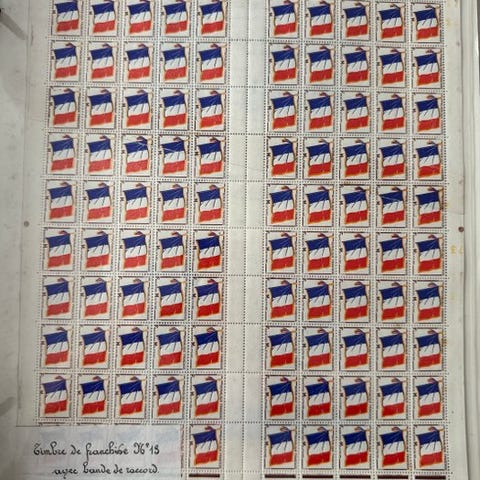 Timbre de franchise N° 13
avec bande de raccord.